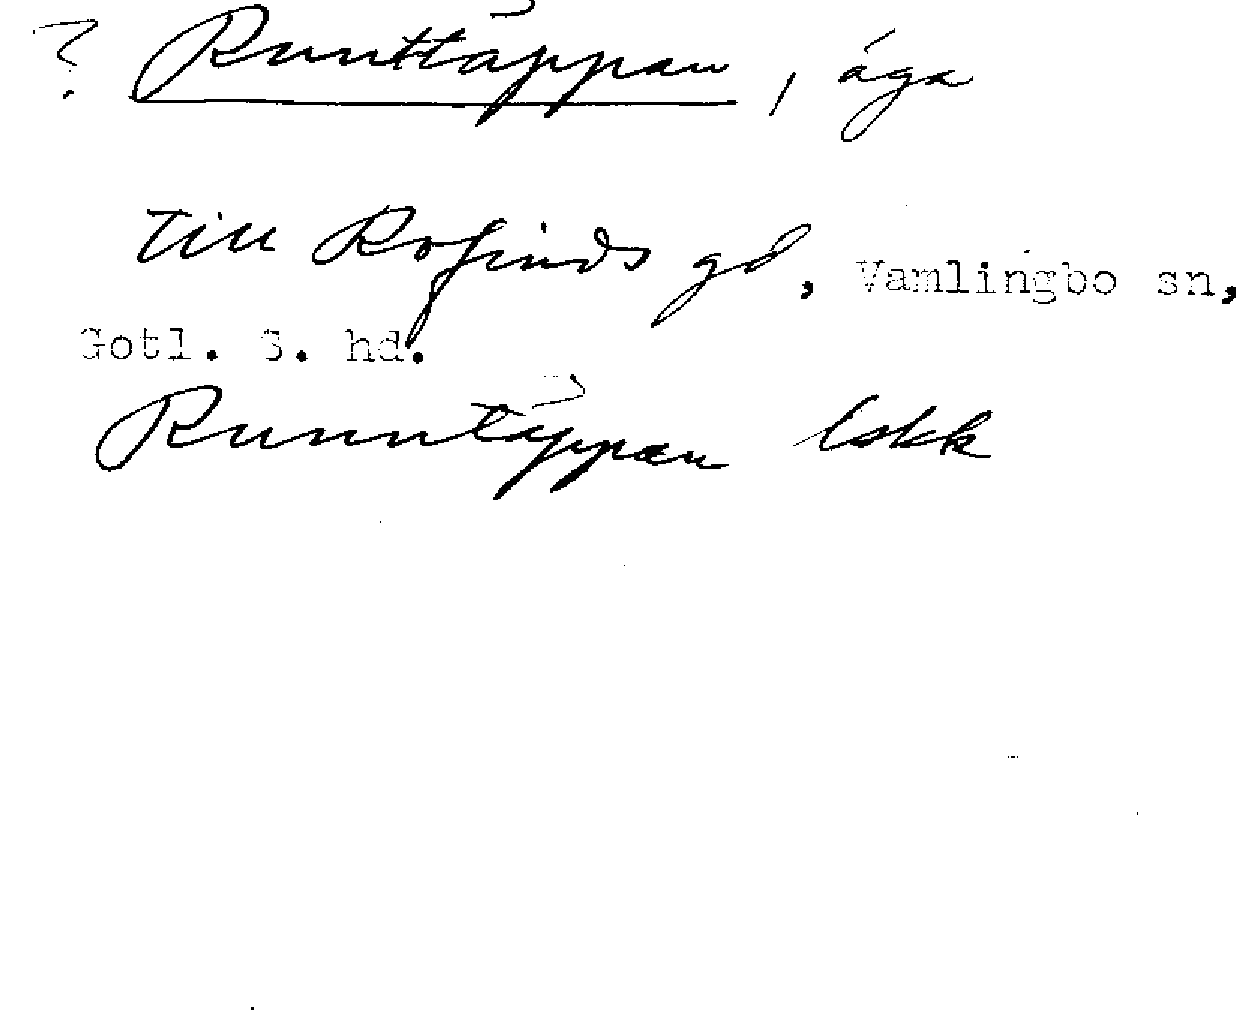 ? Runttäppan, äga
till Rofinds gd, Vamlingbo sn,
Gotl. S. hd.
Runntäppan lskk